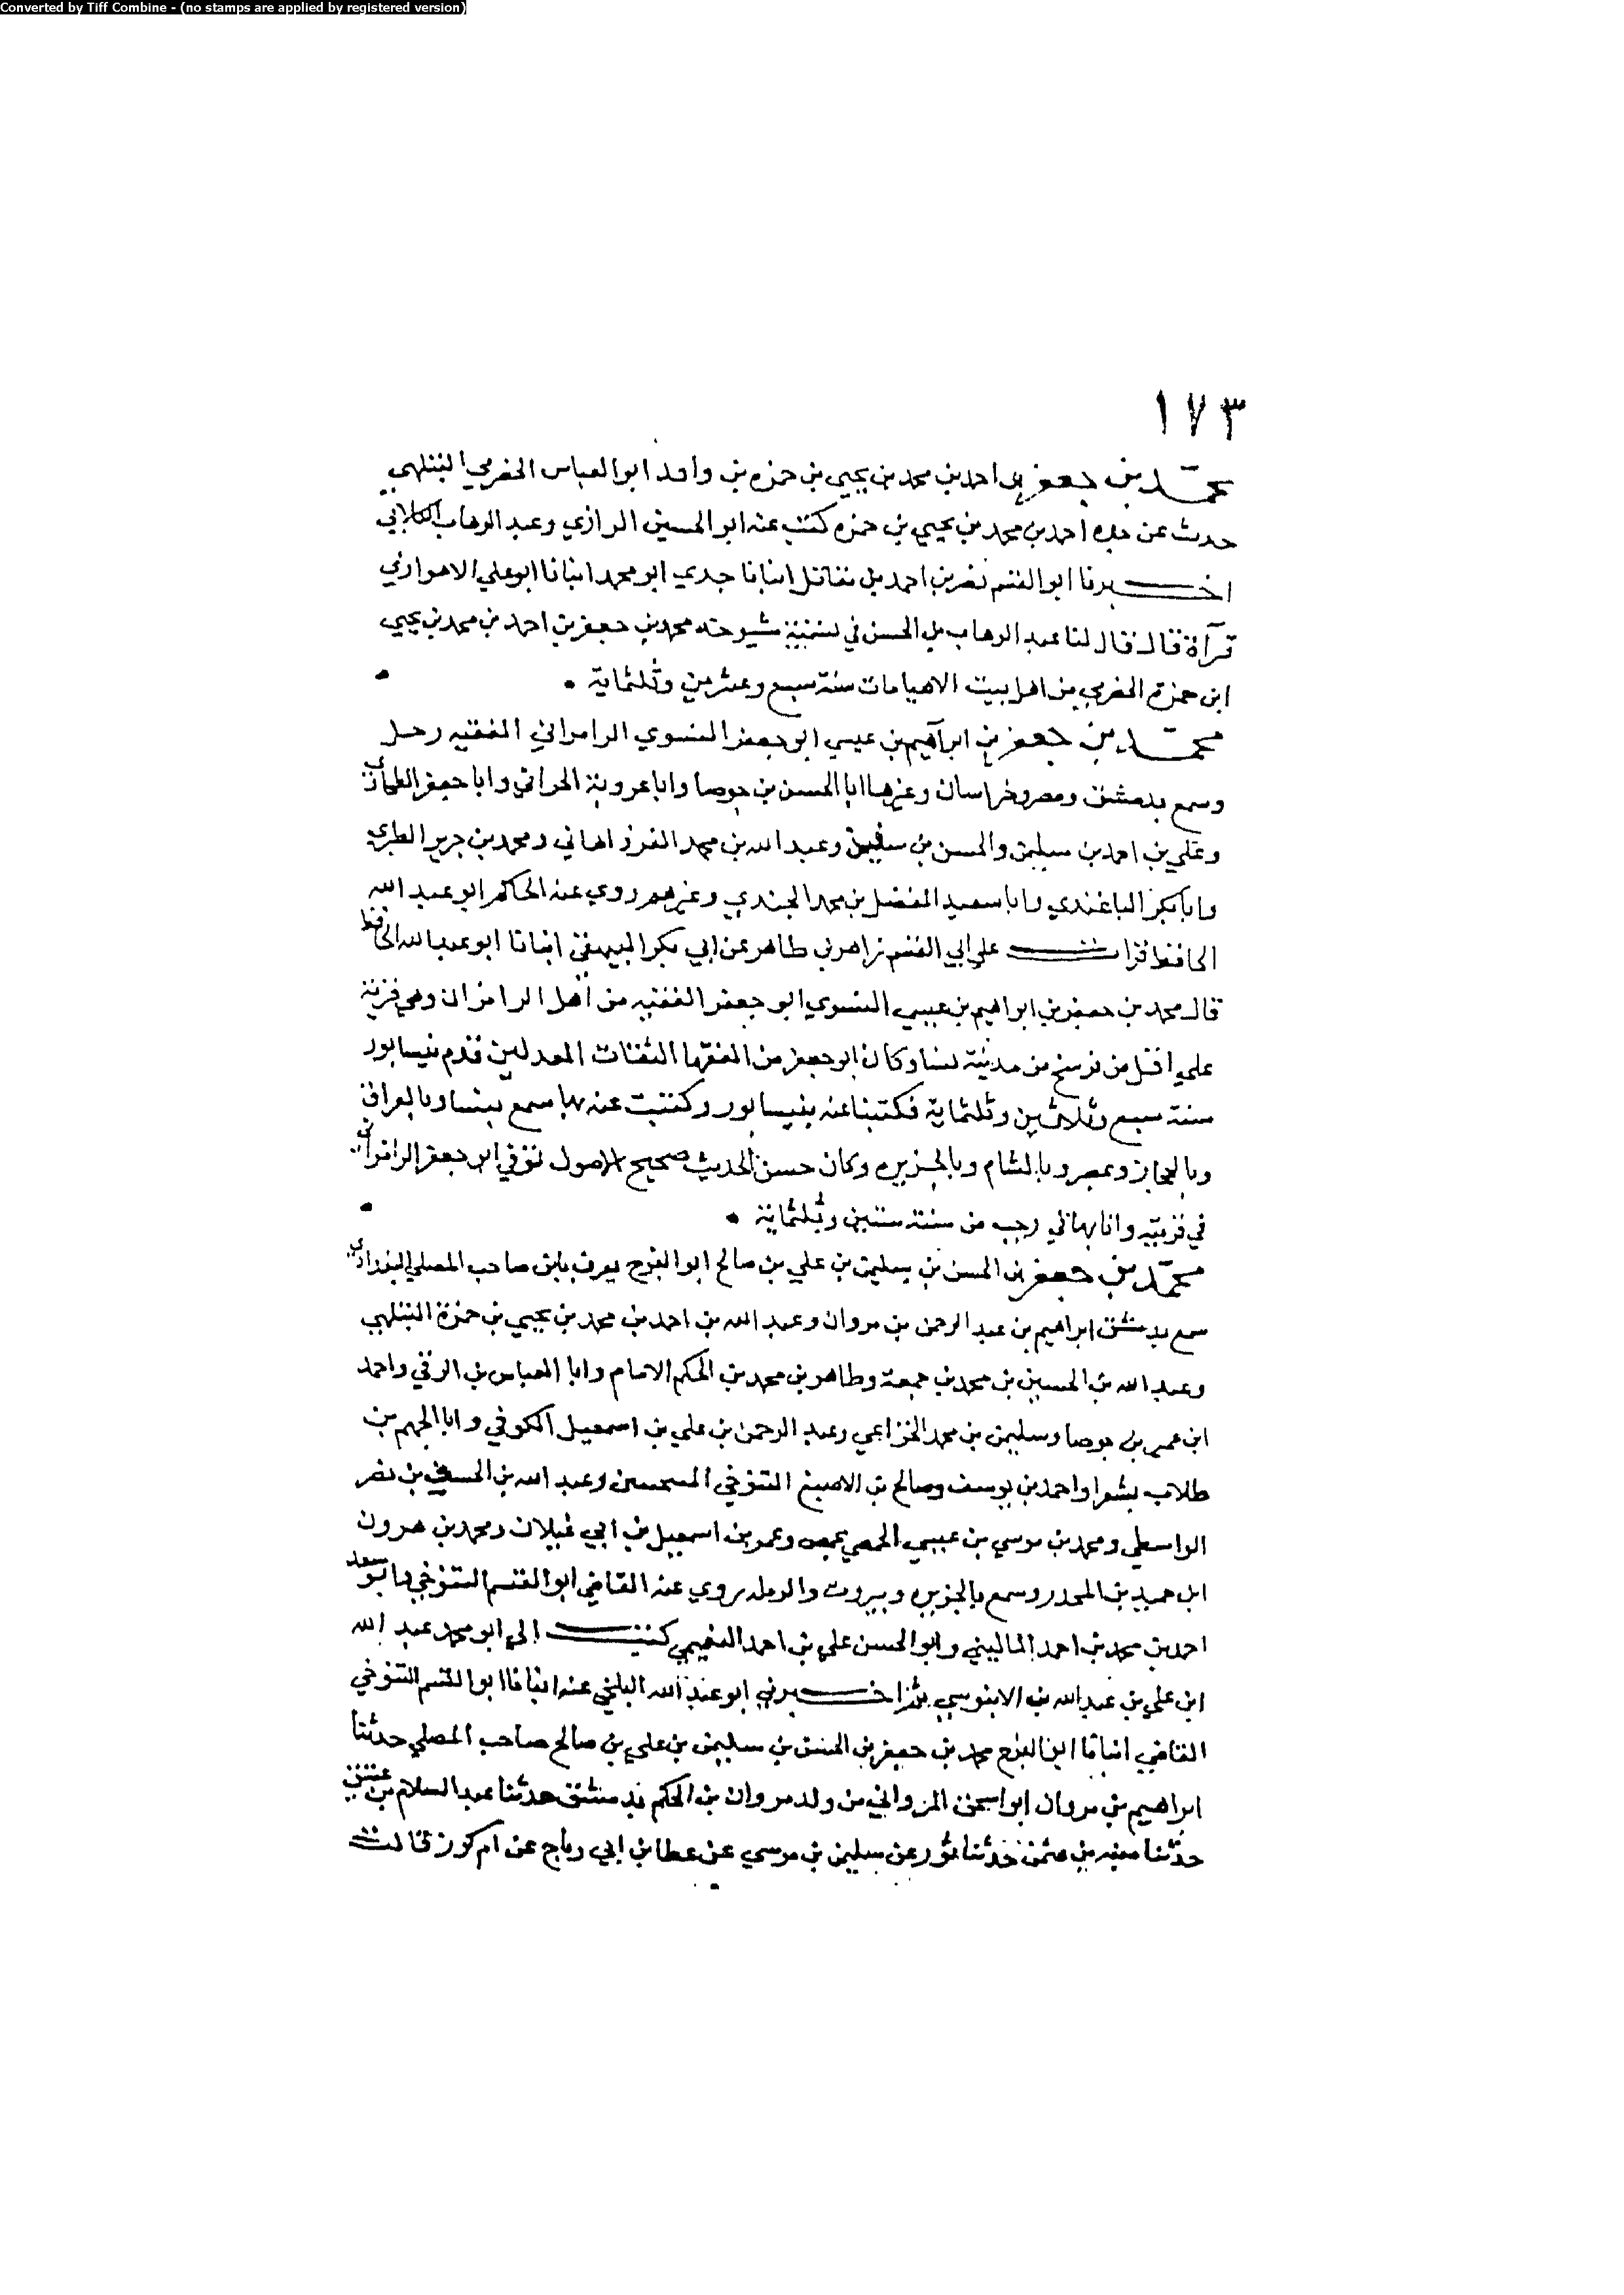 Converted by Tiff Combine - (no stamps are applied by registered version)
١٧٣
محمد بن جعفر بن احمد بن محمد بن يحيي بن حمزه بن واقد ابو العباس الحضرمي البتلهي
حدث عن جده احمد بن محمد بن يحيي بن حمزه كتب عنه ابو الحسين الرازي وعبد الوهاب الكلابي
اخبرنا ابو القسم نصر بن احمد بن مقاتل انبانا جدي ابو محمد انبانا ابو علي الاهوازي
قرآة قال قال لنا عبد الوهاب بن الحسن في تسمية شيوخه محمد بن جعفر بن احمد بن محمد بن يحيي
ابن حمزة الحضرمي من اهل بيت الاهيا مات سنة سبع وعشرين وثلثماية
محمد بن جعفر بن ابراهيم بن عيسي ابو جعفر النسوي الرامراني الفقيه رحل
وسمع بدمشق ومصر وخراسان وغيرها ابا الحسن بن جوصا وابا عروبة الحراني وابا جعفر الطحاوي
وعلي بن احمد بن سليمن والحسن بن سفين وعبد الله بن محمد الفرذاهاني ومحمد بن جرير الطبري
وابا بكر الباغندي وابا سعيد المفضل بن محمد الجندي وغيرهم روي عنه الحاكم ابو عبد الله
الحافظ قرات علي ابي القسم زاهر بن طاهر عن ابي بكر البيهقي انبانا ابو عبد الله الحافظ
قال محمد بن جعفر بن ابراهيم بن عيسي النسوي ابو جعفر الفقيه من اهل الرامران وهي قرية
علي اقل من فرسخ من مدينة نسا وكان ابو جعفر من الفقها الثقات المعدلين قدم نيسابور
سنة سبع وثلاثين وثلثماية فكتبنا عنه بنيسابور وكتبت عنه بها سمع بنسا وبالعراق
وبالحجاز وبمصر وبالشام وبالجزيره وكان حسن الحديث صحيح الاصول توفي ابو جعفر الرامراني
في قريته وانا بها في رجب من سنة ستين وثلثماية
محمد بن جعفر بن الحسن بن سليمن بن علي بن صالح ابو الفرج يعرف بابن صاحب المصلي البغدادي
سمع بدمشق ابراهيم بن عبد الرحمن بن مروان وعبد الله بن احمد بن محمد بن يحيي بن حمزة البتلهي
وعبد الله بن الحسين بن محمد بن جمعة وطاهر بن محمد بن الحكم الامام وابا العباس بن الزفتي واحمد
ابن عمير بن جوصا وسليمن بن محمد الخزاعي وعبد الرحمن بن علي بن اسمعيل الكوفي وابا الجهم بن
طلاب بشعرا واحمد بن يوسف وصالح بن الاصبغ التنوخي المنبجيين وعبد الله بن الحسين بن نصر
الواسطي ومحمد بن موسي بن عيسي الحمصي بحمص وعمر بن اسمعيل بن ابي غيلان ومحمد بن هرون
ابن حميد بن المجدر وسمع بالجزيره وبيروت والرمله روي عنه القاضي ابو القسم التنوخي وابو سعد
احمد بن محمد بن احمد الماليني وابو الحسن علي بن احمد النعيمي كتب الي ابو محمد عبد الله
ابن علي بن عبد الله بن الابنوسي ثم اخبرني ابو عبد الله البلخي عنه انبانا ابو القسم التنوخي
القاضي انبانا ابو الفرج محمد بن جعفر بن الحسن بن سليمن بن علي بن صالح صاحب المصلي حدثنا
ابراهيم بن مروان ابو اسحق المرواني من ولد مروان بن الحكم بدمشق حدثنا عبد السلام بن عتيق
حدثنا منبه بن عثمن حدثنا ثور عن سليمن بن موسي عن عطا بن ابي رباح عن ام كرز قالت